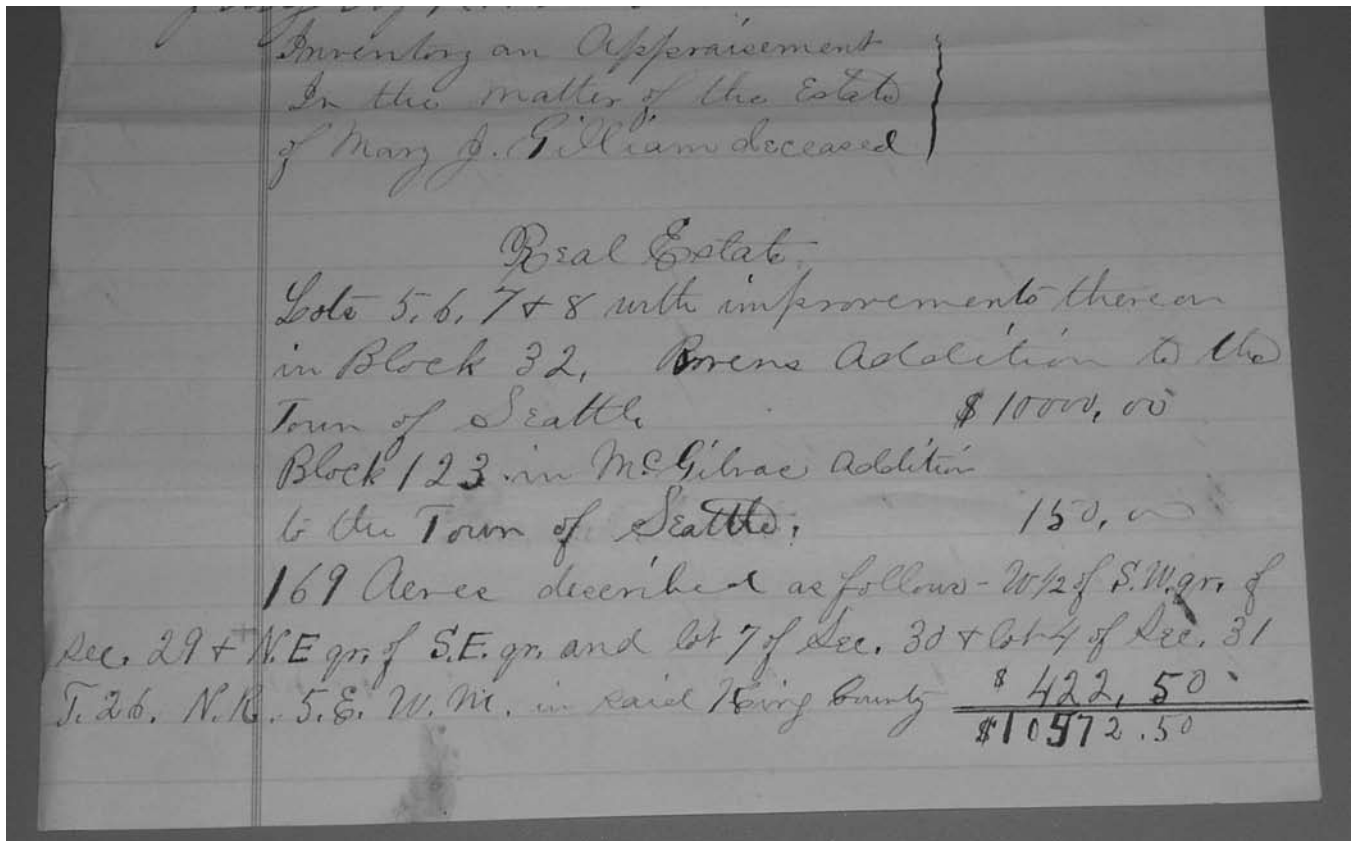 Inventory an Appraisement
In the matter of the Estate
of Mary J. Gilliam deceased
Real Estate
Lots 5, 6, 7 & 8 with improvements thereon
in Block 32, Borens Addition to the
Town of Seattle $10000,00
Block 123 in McGilrae Addition
to the Town of Seattle, 150,00
169 Acres described as follows - W 1/2 of S.W. qr. of
Sec. 29 & N.E qr. of S.E. qr. and lot 7 of Sec. 30 & lot 4 of Sec. 31
T. 26. N.R. 5. E. W. M. in said King County $422,50
$10572.50